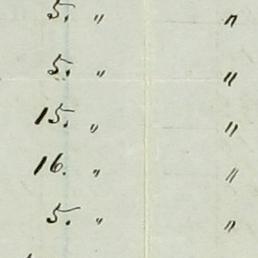 5. " "
5. " "
15. " "
16. " "
5. " "